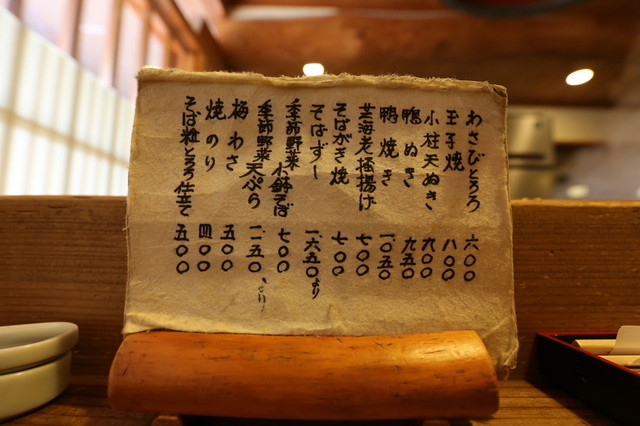 わさびとろろ 六〇〇
玉子焼 八〇〇
小柱天ぬき 九〇〇
鴨ぬき 九五〇
鴨焼き 一、〇五〇
芝海老極揚げ 七〇〇
そばがき焼 七〇〇
そばずし 一、六五〇より
季節野菜 小鉢そば 七〇〇
季節野菜 天ぷら 一、一五〇より
梅わさ 五〇〇
焼のり 四〇〇
そば粒とろろ仕立て 五〇〇